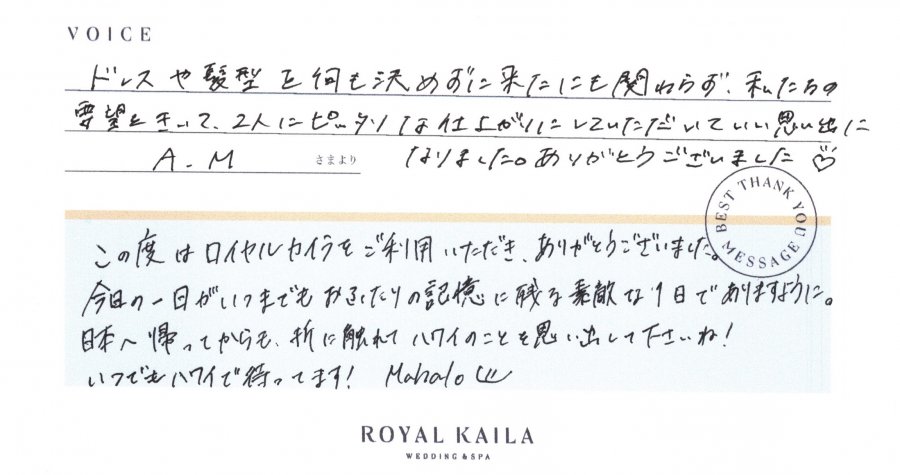 VOICE
ドレスや髪型を何も決めずに来たにも関わらず、私たちの
要望をきいて、2人にピッタリな仕上がりにしていただいていい思い出に
A.M さまより なりました。ありがとうございました♡
BEST THANK YOU MESSAGE
この度はロイヤルカイラをご利用いただき、ありがとうございました。
今日の一日がいつまでもおふたりの記憶に残る素敵な1日でありますように。
日本へ帰ってからも、折に触れてハワイのことを思い出して下さいね!
いつでもハワイで待ってます! Mahalo
ROYAL KAILA
WEDDING & SPA